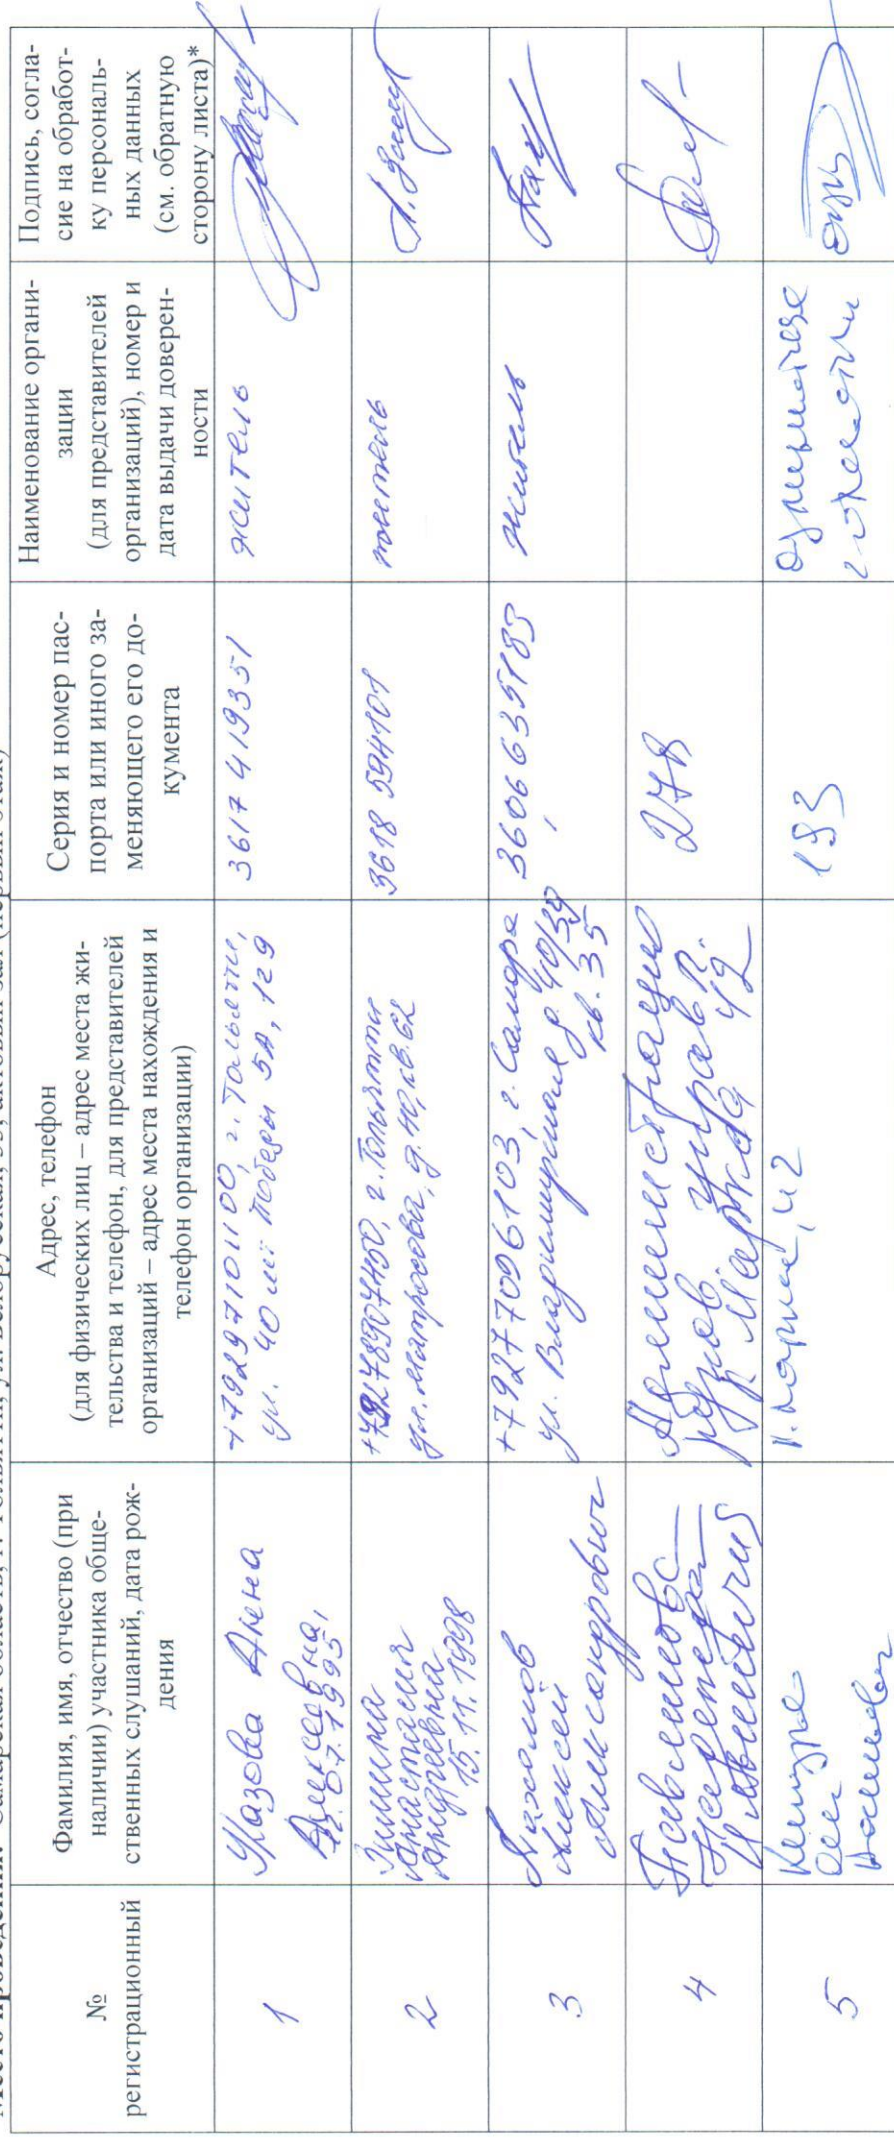 Место проведения: Самарская область, г. Тольятти, ул. Белорусская, 33, актовый зал (первый этаж)
№
регистрационный
Фамилия, имя, отчество (при
наличии) участника обще-
ственных слушаний, дата рож-
дения
Адрес, телефон
(для физических лиц – адрес места жи-
тельства и телефон, для представителей
организаций – адрес места нахождения и
телефон организации)
Серия и номер пас-
порта или иного за-
меняющего его до-
кумента
Наименование органи-
зации
(для представителей
организаций), номер и
дата выдачи доверен-
ности
Подпись, согла-
сие на обработ-
ку персональ-
ных данных
(см. обратную
сторону листа)*
1
Алена
Алексеевна,
07.1995
+79297101100, г. Тольятти,
ул. 40 лет Победы 5А, 129
3617 419351
житель
2
Зимина
Анастасия
Андреевна
15.11.1998
г. Тольятти
ул. Матросова, д. 40, кв. 62
3618 594101
житель
3
Пахомов
Алексей
Александрович
+79277096103, г. Самара
ул. Владимирская д. 40/39
кв. 35
3606635183
житель
4
Администрация
К. Маркса 42
278
5
К. Маркса, 42
193